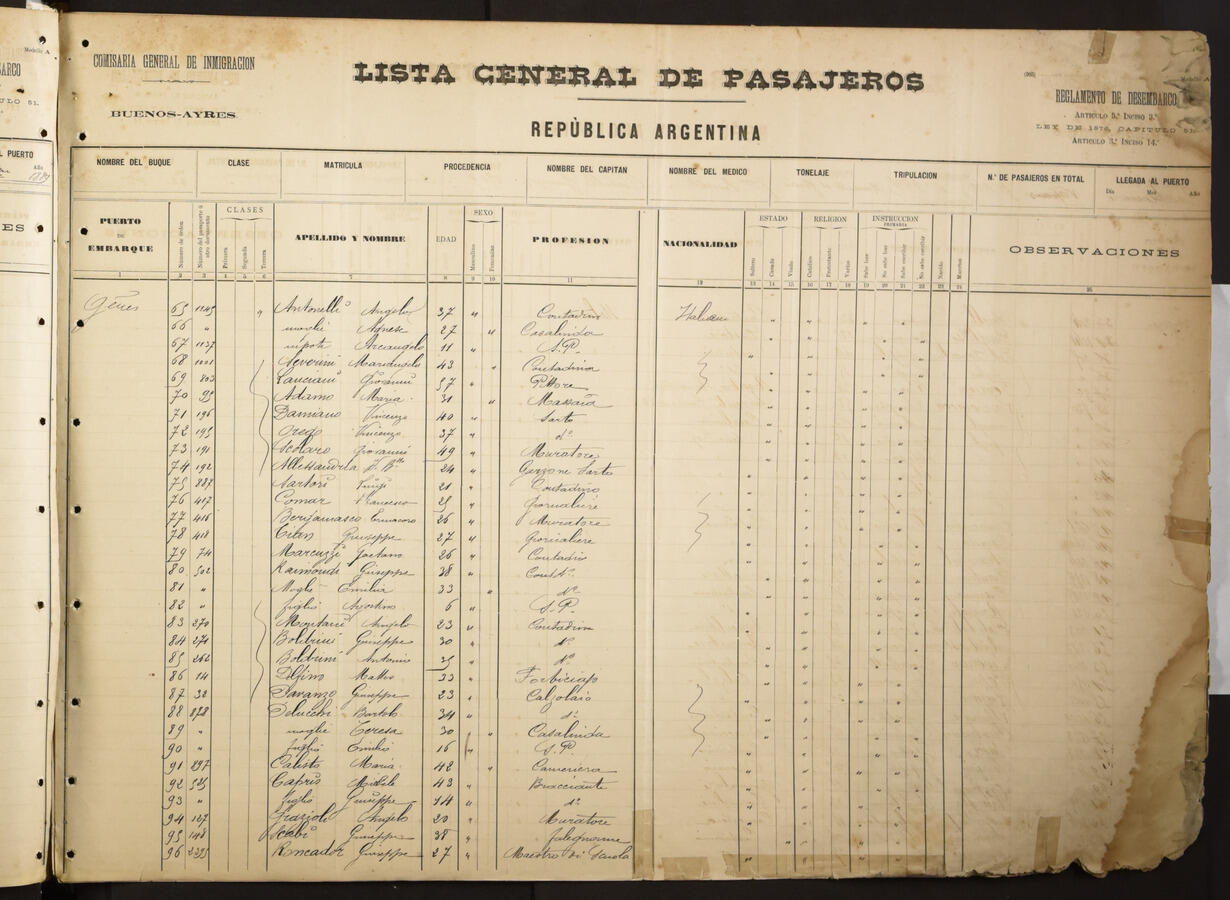 COMISARIA GENERAL DE INMIGRACION
BUENOS-AYRES
LISTA GENERAL DE PASAJEROS
REPÙBLICA ARGENTINA
REGLAMENTO DE DESEMBARCO
ARTICULO 5.º INCISO 3.º
LEY DE 1876, CAPITULO 51.
ARTICULO 3.º INCISO 14.º
NOMBRE DEL BUQUE CLASE MATRICULA PROCEDENCIA NOMBRE DEL CAPITAN NOMBRE DEL MEDICO TONELAJE TRIPULACION N.º DE PASAJEROS EN TOTAL LLEGADA AL PUERTO
Dia Mes Año
PUERTO DE EMBARQUE Número de órden Número del pasaporte ú otro documento CLASES Primera Segunda Tercera APELLIDO Y NOMBRE EDAD SEXO Masculino Femenino PROFESION NACIONALIDAD ESTADO Soltero Casado Viudo RELIGION Católico Protestante Varios INSTRUCCION PRIMARIA Sabe leer No sabe leer Sabe escribir No sabe escribir Nacido Muertos OBSERVACIONES
1 2 3 4 5 6 7 8 9 10 11 12 13 14 15 16 17 18 19 20 21 22 23 24 25
65 Antonelli Angelo 37 " Contadin Italian
66 " moglie Agnese 27 " Casalinda
67 1137 nipote Arcangelo 11 " S.P.
68 Severini Mariangela 43 " Contadina
69 803 Lanciani Giovanni 37 " Pittore
70 95 Adamo Maria 31 " Massaia
71 196 Damiano Vincenzo 40 " Sarto
72 195 Orego Vincenzo 37 " dº
73 191 Scolaro Giovanni 49 " Muratore
74 192 Allessandria 24 " Garzone Sarto
75 887 Sartori Luigi 21 " Contadino
76 417 Comar Francesco 25 " Giornaliere
77 416 Bergamasco Ermacora 26 " Muratore
78 418 Cian Giuseppe 27 " Giornaliere
79 74 Marcuzzi Gaetano 26 " Contadin
80 502 Raimondi Giuseppe 38 " Contº
81 " Moglie Emilia 33 " dº
82 " figlio Agostino 6 " S.P.
83 270 Montani Angelo 23 " Contadin
84 271 Boldrini Giuseppe 30 " dº
85 262 Boldrini Antonio 35 " dº
86 14 Delfino Matteo 33 "
87 32 Saranzo Giuseppe 23 " Calzolaio
88 878 Delucchi Bartolo 34 " dº
89 " moglie Teresa 30 " Casalinda
90 " figlio Emilio 16 " S.P.
91 297 Calisto Maria 42 " Cameriera
92 525 Capris Michele 43 " Bracciante
93 " figlio Giuseppe 14 " dº
94 127 Frazioli Angelo 20 " Muratore
95 148 Scabi Giuseppe 38 " Falegname
96 Roncador Giuseppe 27 " Maestro di Scuola